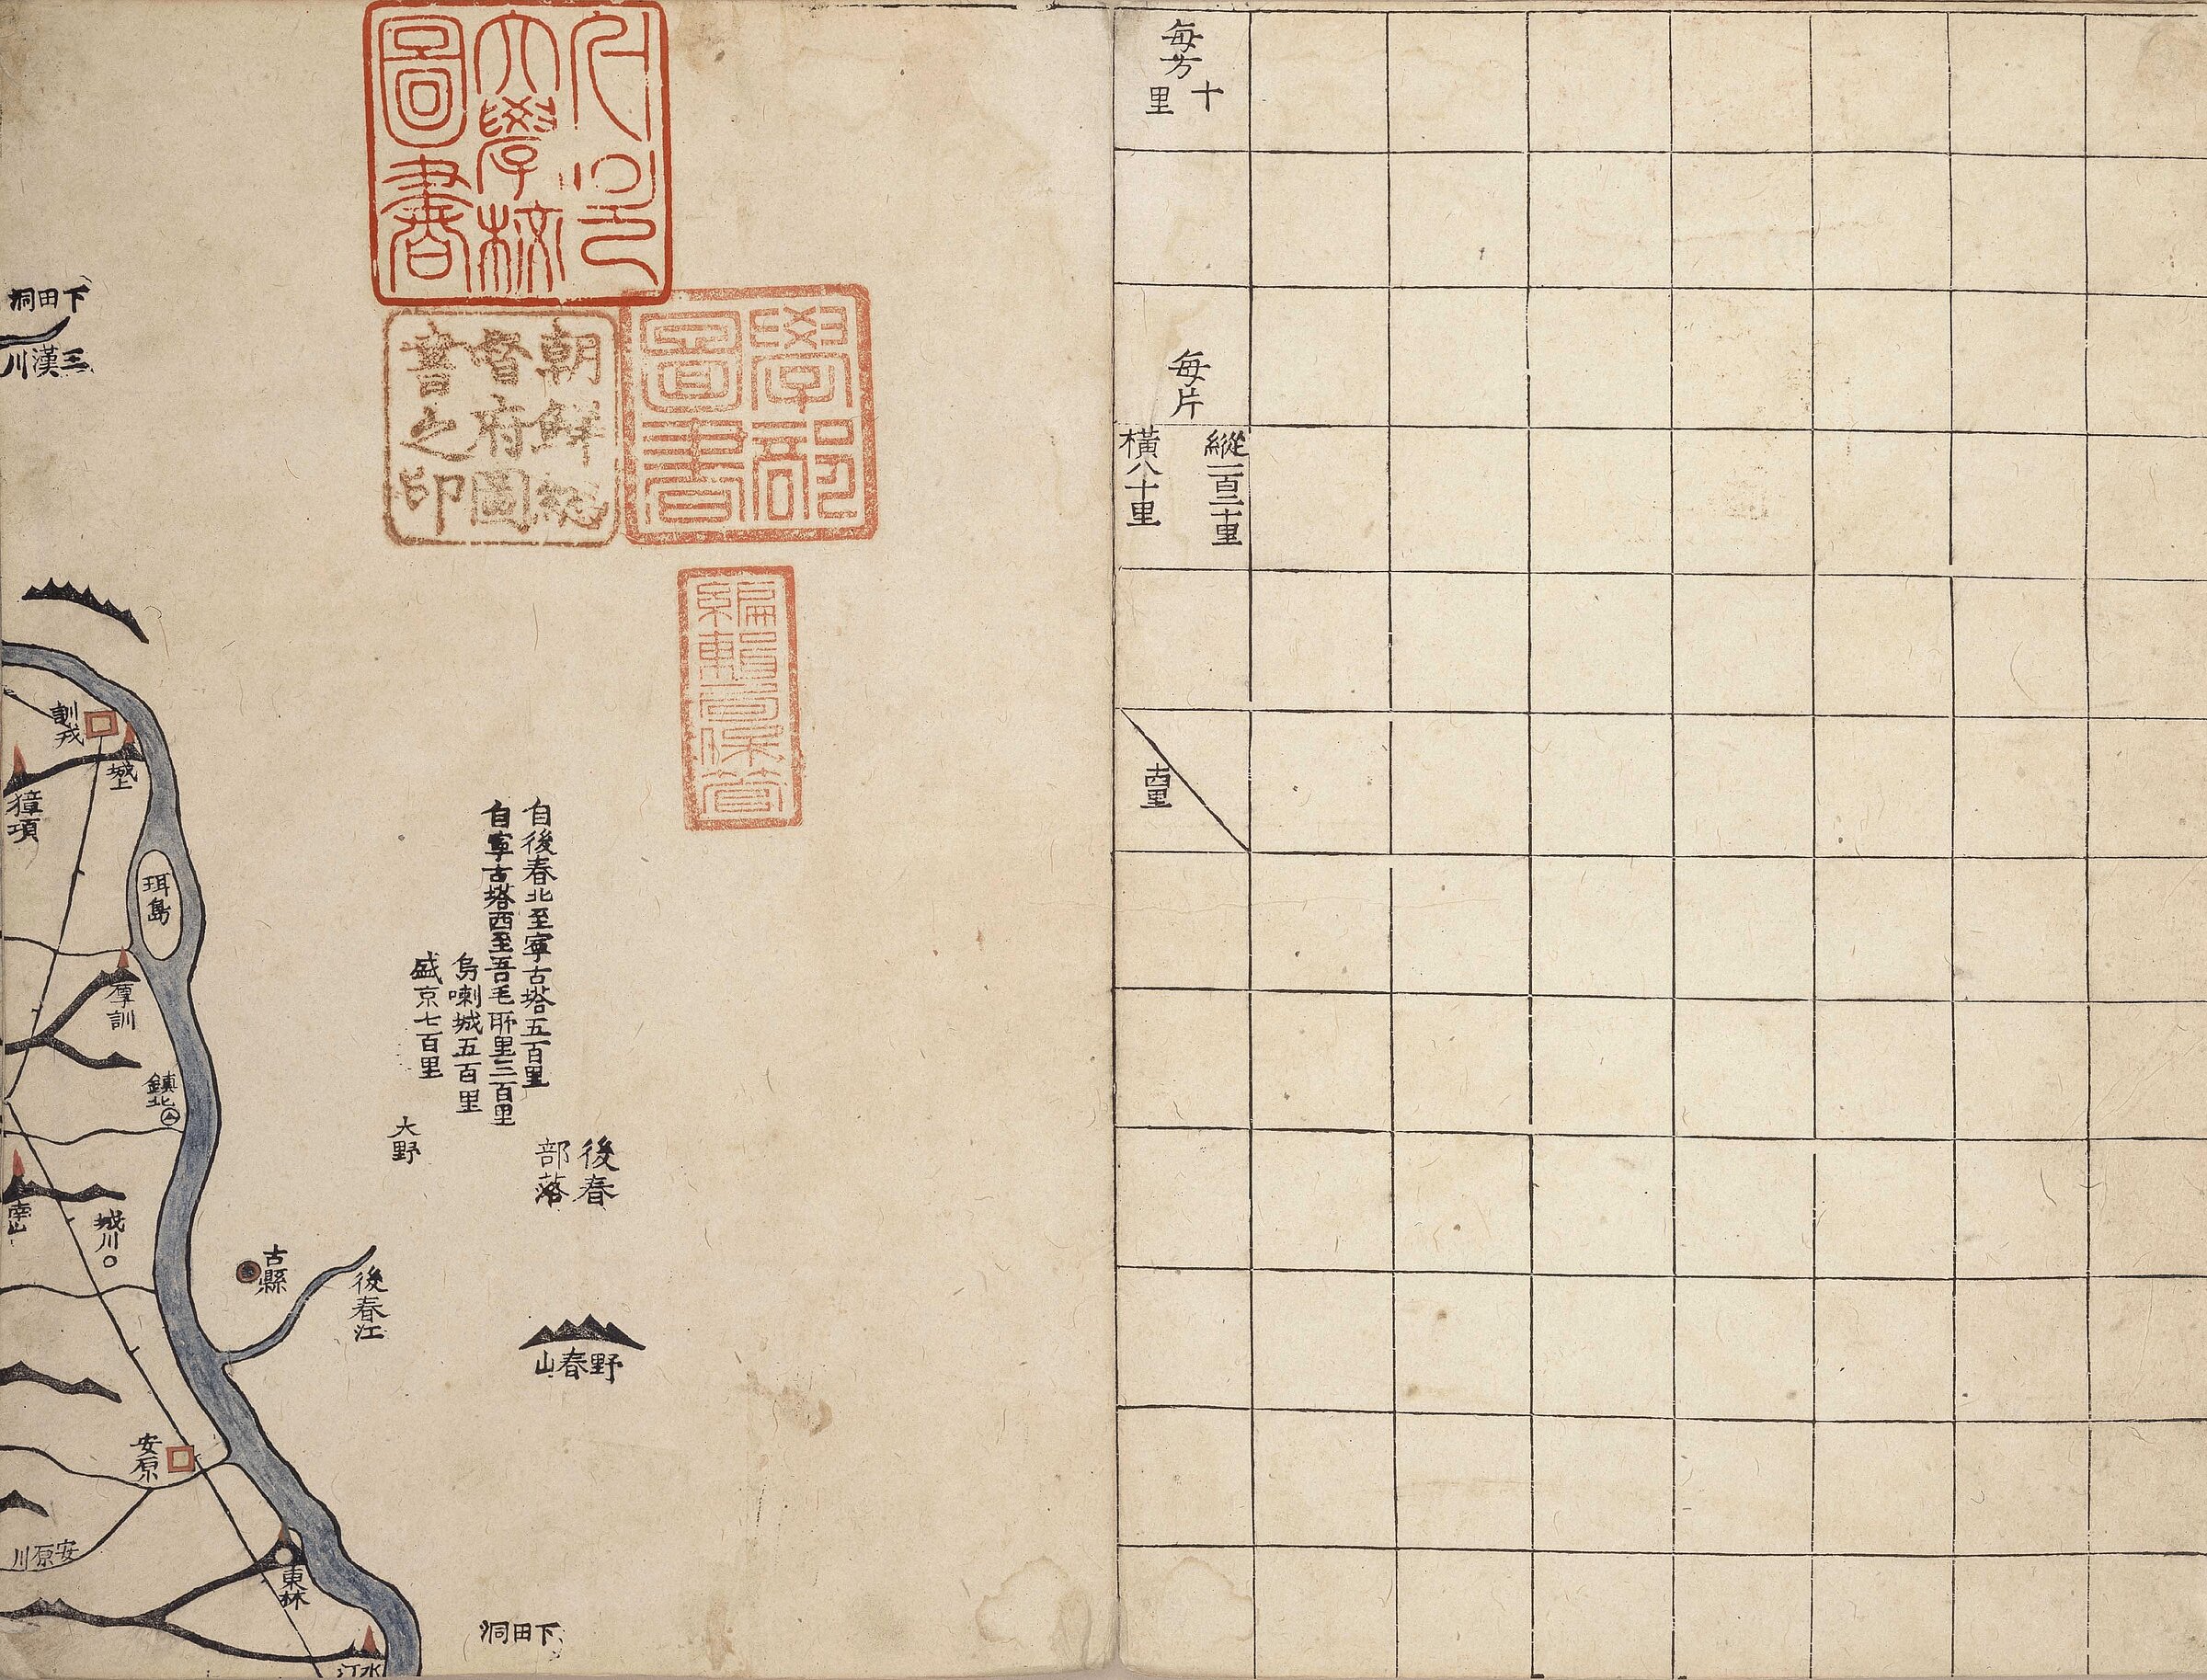 每方
十
里
每片
縱一百二十里
橫八十里
十四里
서울
大學校
圖書
學部
圖書
朝鮮總
督府圖
書之印
編輯局保管
自後春北至寧古塔五百里
自寧古塔西至吾毛所里三百里
烏喇城五百里
盛京七百里
大野
後春
部落
後春江
古縣
野春山
下田洞
下田洞
三漢川
訓戎
城上
獐項
珥島
厚訓
鎮北
南山
城川
安原
安原川
東林
水汀